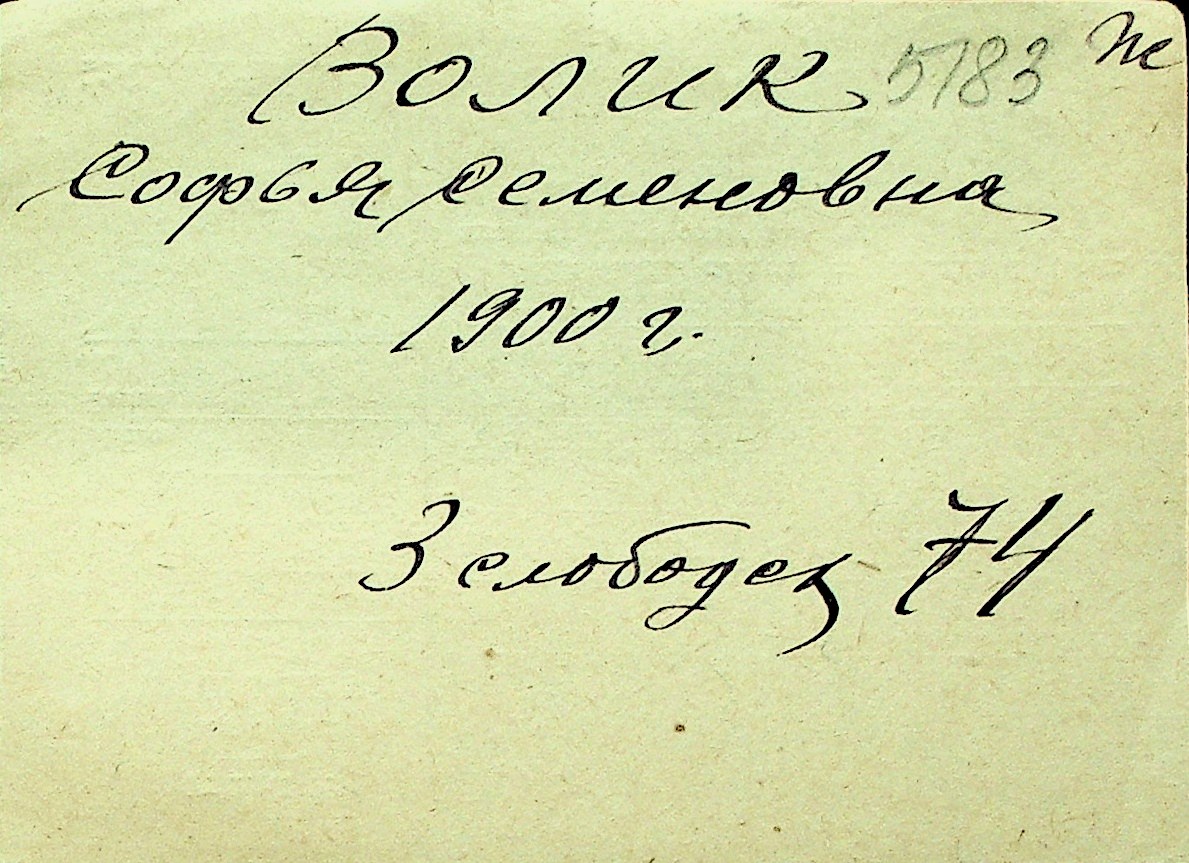 Волик 5183 Ж
Софья Семеновна
1900 г.
3 слободск 74